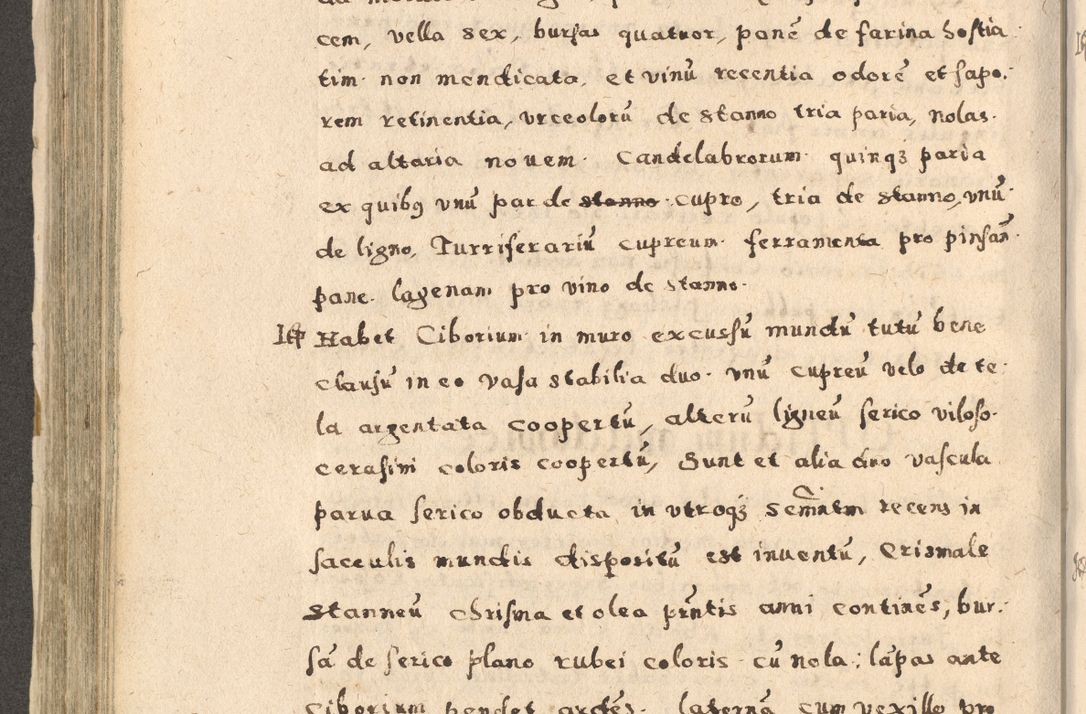 cem, vella sex, bursas quatuor, panē de farina hostia
tim non mendicata, et vinū recentia odorē et sapo.
rem retinentia, vrceolorū de stanno tria paria, nolas
ad altaria nouem. Candelabrorum quinqꝫ paria
ex quibꝰ vnū par de ~~stanno~~ cupro, tria de stanno, vnū
de ligno, Turriferariū cupreum. ferramenta pro pinsan̄
pane. lagenam pro vino de stanno.
Itꝫ Habet Ciborium in muro excussū mundū tutū bene
clausū in eo vasa stabilia duo. vnū cupreū velo de te
la argentata coopertū, alterū ligneū serico viloso
cerasini coloris coopertū, Sunt et alia duo vascula
parua serico obducta, in vtroqꝫ recens in
sacculis mundis dispositū est inuentū, Crismale
stanneū chrisma et olea prn̄tis anni continēs, bur.
sā de serico plano rubei coloris cū nola; lāpas ante
Ciborium pendet ardēs. laternā cum vexillo pro